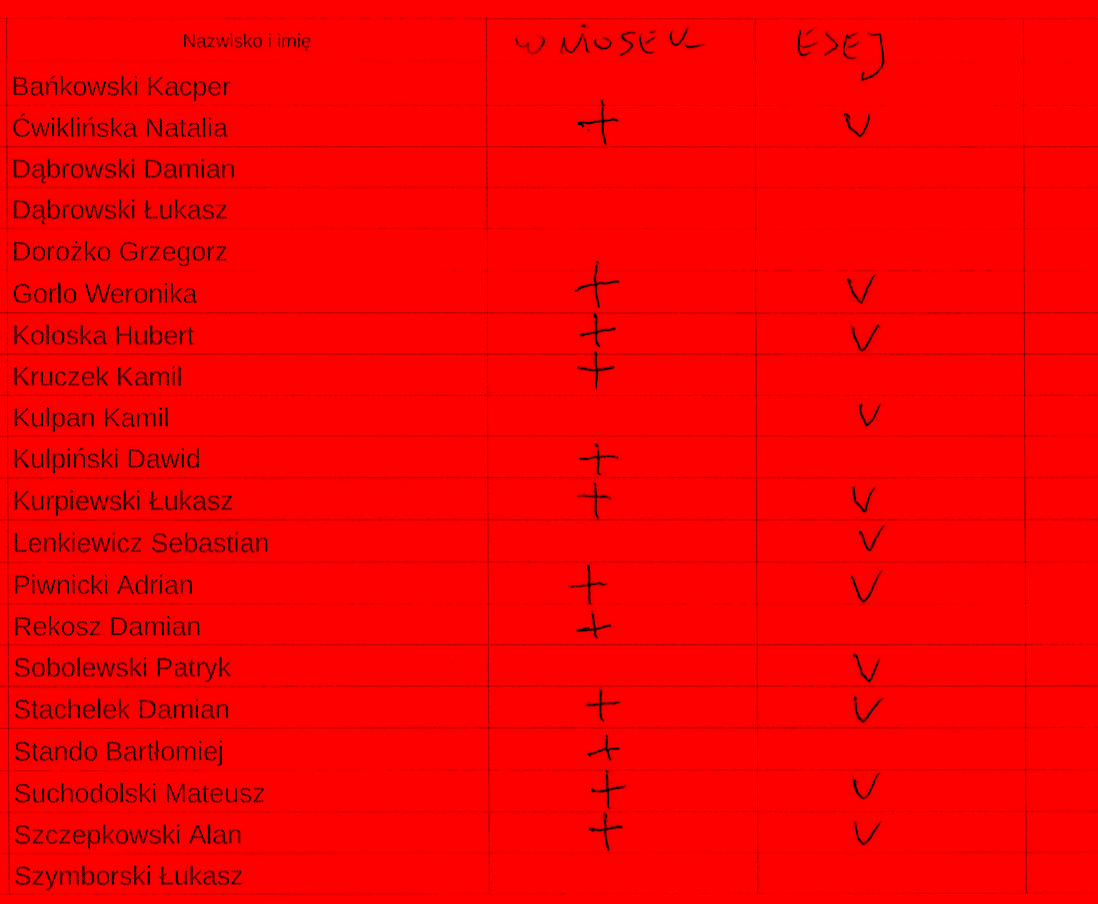 Nazwisko i imię WNIOSEK ESEJ
Bańkowski Kacper
Ćwiklińska Natalia + V
Dąbrowski Damian
Dąbrowski Łukasz
Dorożko Grzegorz
Gorlo Weronika + V
Koloska Hubert + V
Kruczek Kamil +
Kulpan Kamil V
Kulpiński Dawid +
Kurpiewski Łukasz + V
Lenkiewicz Sebastian V
Piwnicki Adrian + V
Rekosz Damian +
Sobolewski Patryk V
Stachelek Damian + V
Stando Bartłomiej +
Suchodolski Mateusz + V
Szczepkowski Alan + V
Szymborski Łukasz